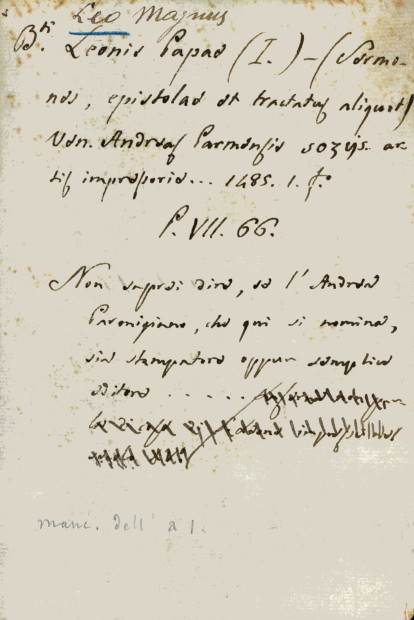 Leo Magnus
Bti. Leonis Papae (I.) – (Sermo-
nes, epistolae et tractatus aliquot)
Ven. Andreas Parmensis sozys. ar
tis impressorie... 1485. 1. f.º
P. VII. 66.
Non saprei dire, se l' Andrea
Parmigiano, che qui si nomina,
sia stampatore oppur semplice
editore . . . . .
manc. dell' a 1.